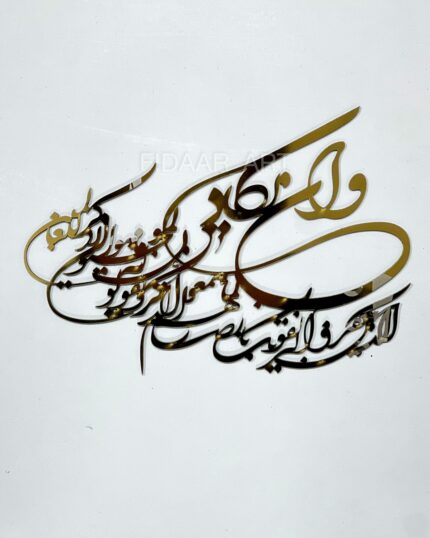 FIDAAR_ART
وان یکاد
الذین کفروا لیزلقونک بابصارهم
لما سمعوا الذکر و یقولون
انه لمجنون و ما هو الا ذکر للعالمین